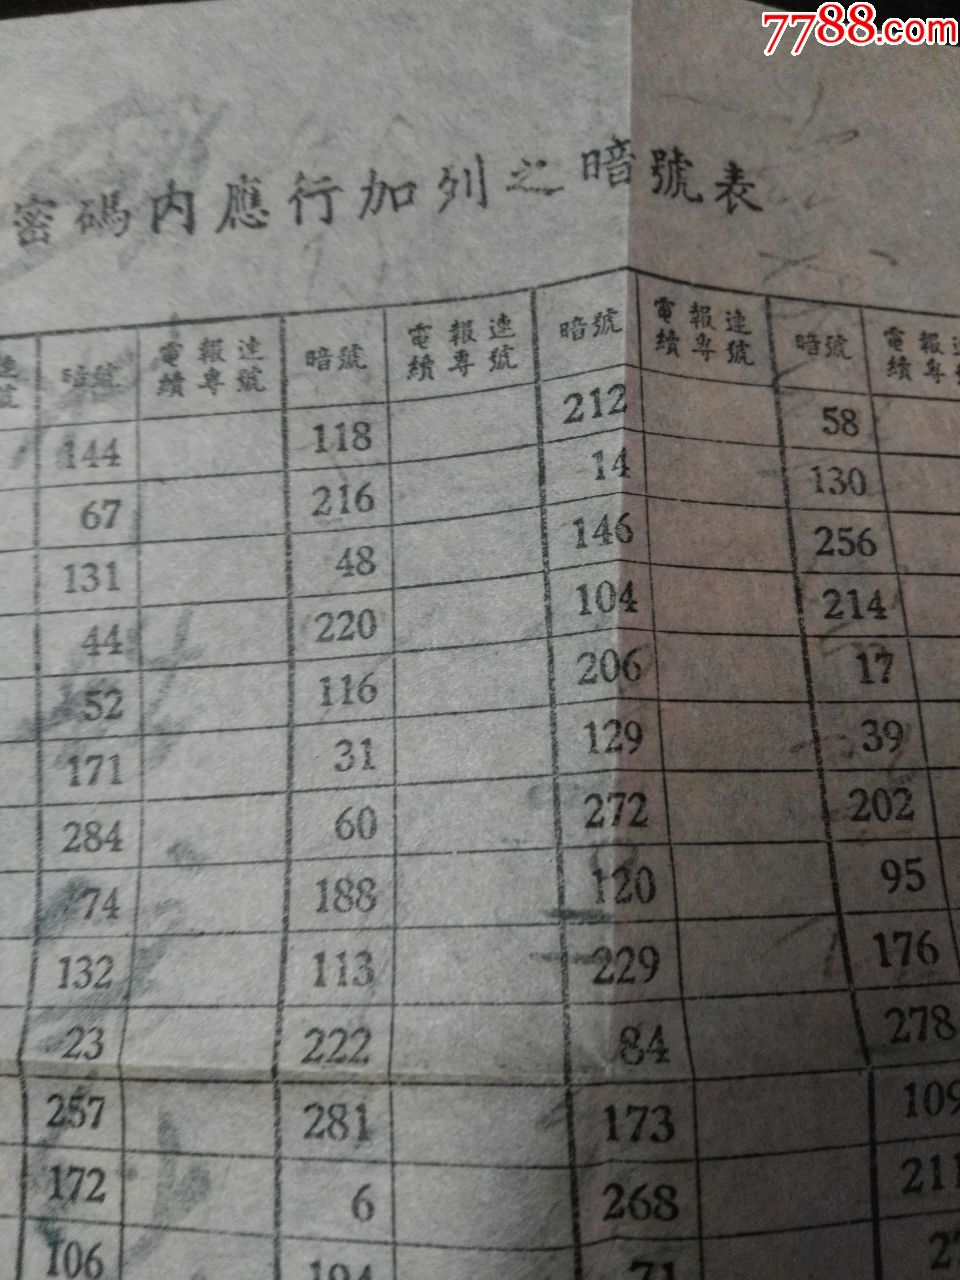 7788.com
密碼內應行加列之暗號表
暗號 電報連續專號 暗號 電報連續專號 暗號 電報連續專號 暗號 電報
144 118 212 58
67 216 14 130
131 48 146 256
44 220 104 214
52 116 206 17
171 31 129 39
284 60 272 202
74 188 120 95
132 113 229 176
23 222 84 278
257 281 173 109
172 6 268 211
106 194 71